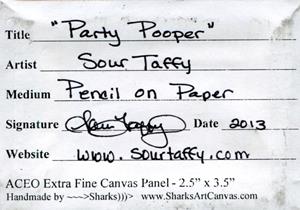 Title "Party Pooper"
Artist Sour Taffy
Medium Pencil on Paper
Signature Sour Taffy Date 2013
Website www.sourtaffy.com
ACEO Extra Fine Canvas Panel - 2.5" x 3.5"
Handmade by ~~~>Sharks)))> www.SharksArtCanvas.com